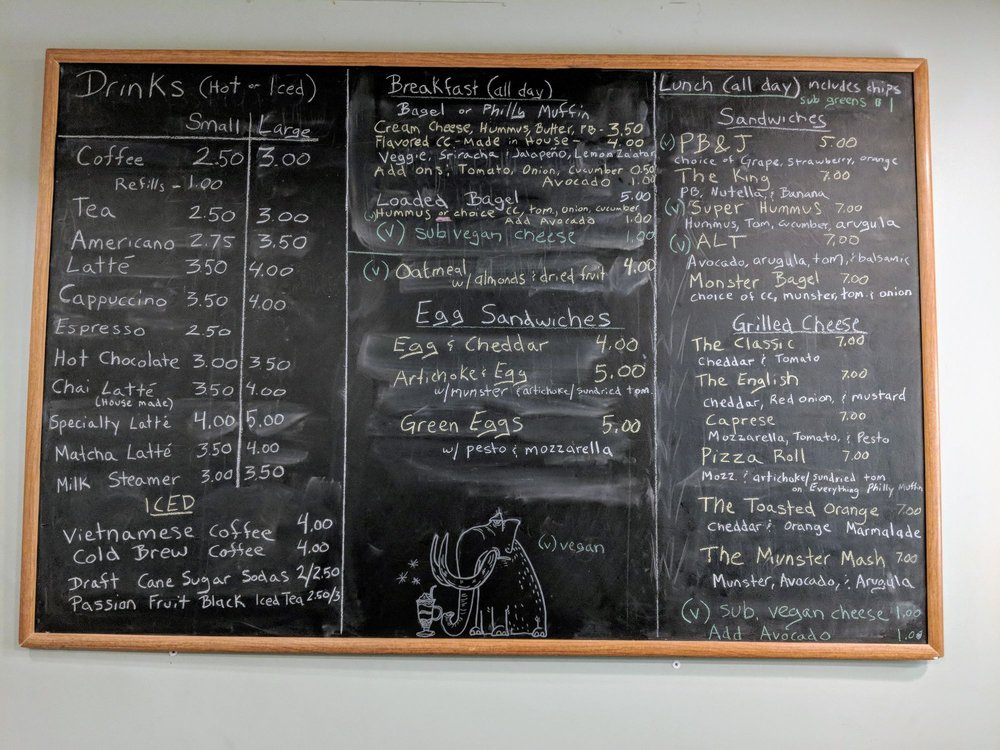 Drinks (Hot or Iced)
Small Large
Coffee 2.50 3.00
Refills - 1.00
Tea 2.50 3.00
Americano 2.75 3.50
Latté 3.50 4.00
Cappuccino 3.50 4.00
Espresso 2.50
Hot Chocolate 3.00 3.50
Chai Latté 3.50 4.00
(House made)
Specialty Latté 4.00 5.00
Matcha Latté 3.50 4.00
Milk Steamer 3.00 3.50
ICED
Vietnamese Coffee 4.00
Cold Brew Coffee 4.00
Draft Cane Sugar Sodas 2/2.50
Passion Fruit Black Iced Tea 2.50/3
Breakfast (all day)
Bagel or Philly Muffin
Cream Cheese, Hummus, Butter, PB - 3.50
Flavored CC - Made in House - 4.00
Veggie, Sriracha & Jalapeño, Lemon Zaatar
Add ons: Tomato, Onion, Cucumber 0.50
Avocado 1.00
Loaded Bagel 5.00
(v) Hummus or choice CC, tom, onion, cucumber
Add Avocado 1.00
(v) sub vegan cheese 1.00
(v) Oatmeal 4.00
w/ almonds & dried fruit
Egg Sandwiches
Egg & Cheddar 4.00
Artichoke & Egg 5.00
w/ munster & artichoke/sundried tom.
Green Eggs 5.00
w/ pesto & mozzarella
(v) vegan
Lunch (all day) includes chips
sub greens $1
Sandwiches
(v) PB & J 5.00
choice of Grape, strawberry, orange
The King 7.00
PB, Nutella, & Banana
(v) Super Hummus 7.00
Hummus, Tom, cucumber, arugula
(v) ALT 7.00
Avocado, arugula, tom, & balsamic
Monster Bagel 7.00
choice of cc, munster, tom & onion
Grilled Cheese
The Classic 7.00
Cheddar & Tomato
The English 7.00
Cheddar, Red onion, & mustard
Caprese 7.00
Mozzarella, Tomato, & Pesto
Pizza Roll 7.00
Mozz. & artichoke/sundried tom
on Everything Philly Muffin
The Toasted Orange 7.00
Cheddar & Orange Marmalade
The Munster Mash 7.00
Munster, Avocado, & Arugula
(v) sub. vegan cheese 1.00
Add Avocado 1.00